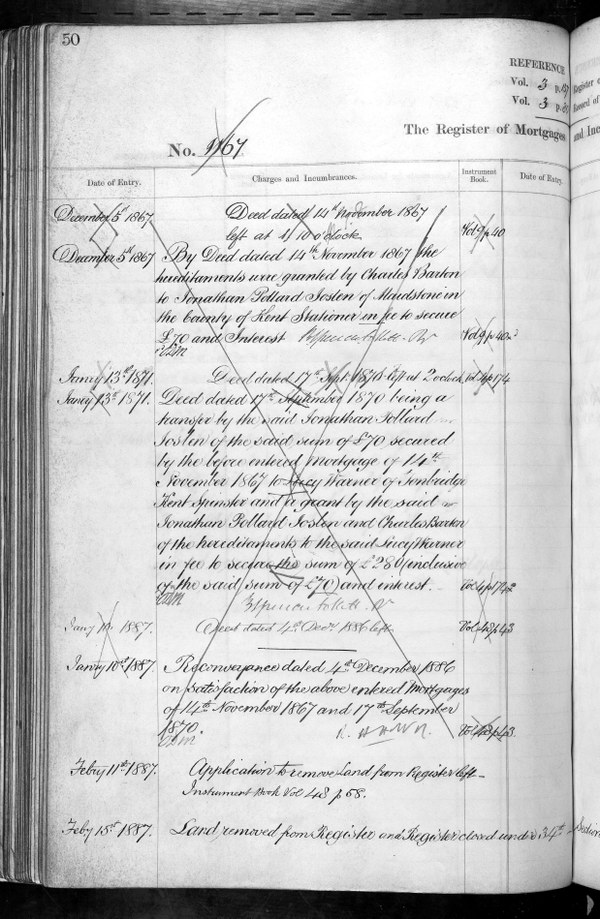 50
REFERENCE
Vol. 3 p.
Vol. 3 p.
Register
Record of
The Register of Mortgages
and Inc
No. 67
Date of Entry.
Charges and Incumbrances.
Instrument Book.
Date of Entry.
December 5th 1867
Deed dated 14th November 1867
left at 1/10 o'clock
Vol 9 p 40
December 5th 1867
By Deed dated 14th November 1867 the
hereditaments were granted by Charles Barton
to Jonathan Pollard Josten of Maidstone in
the County of Kent Stationer in fee to secure
£70 and Interest
Vol 9 p 40
Janry 13th 1871.
Deed dated 17th Sept. 1870 left at 2 oclock
Janry 13th 1871.
Deed dated 17th September 1870 being a
transfer by the said Jonathan Pollard
Josten of the said sum of £70 secured
by the before entered Mortgage of 14th
November 1867 to Lucy Warner of Tonbridge
Kent Spinster and a grant by the said
Jonathan Pollard Josten and Charles Barton
of the hereditaments to the said Lucy Warner
in fee to secure the sum of £280 (inclusive
of the said sum of £70) and interest.
Jany 10 1887.
Deed dated 4th Decr 1886 left
Vol. 48 p 43
Janry 10th 1887.
Reconveyance dated 4th December 1886
on satisfaction of the above entered Mortgages
of 14th November 1867 and 17th September
1870.
Vol 48 p 43.
Febry 11th 1887.
Application to remove Land from Register left
Instrument Book Vol 48 p 68.
Feby 15th 1887.
Land removed from Register and Register closed under 34th Section